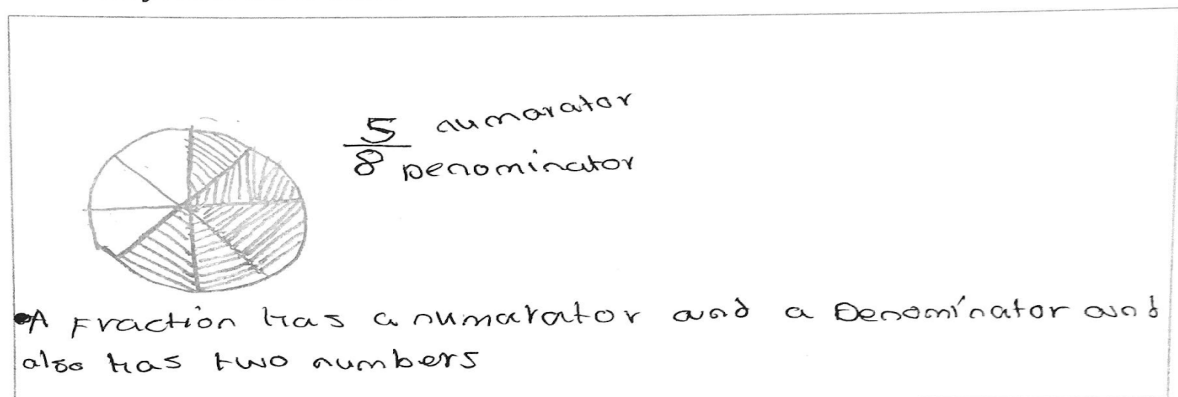 5 numarator
8 Denominator
•A Fraction has a numarator and a Denominator and
also has two numbers